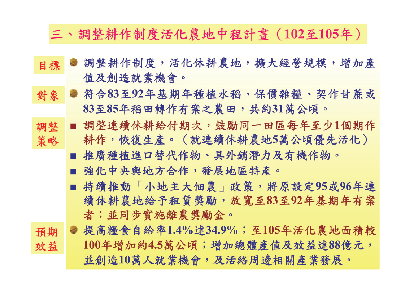 三、調整耕作制度活化農地中程計畫（102至105年）
目標
調整耕作制度，活化休耕農地，擴大經營規模，增加產
值及創造就業機會。
對象
符合83至92年基期年種植水稻、保價雜糧、契作甘蔗或
83至85年稻田轉作有案之農田，共約31萬公頃。
調整
策略
調整連續休耕給付期次，鼓勵同一田區每年至少1個期作
耕作，恢復生產。（就連續休耕農地5萬公頃優先活化）
推廣種植進口替代作物、具外銷潛力及有機作物。
強化中央與地方合作，發展地區特產。
持續推動「小地主大佃農」政策，將原設定95或96年連
續休耕農地給予租賃獎勵，放寬至83至92年基期年有案
者；並同步實施離農獎勵金。
預期
效益
提高糧食自給率1.4%達34.9%；至105年活化農地面積較
100年增加約4.5萬公頃；增加總體產值及效益達88億元，
並創造10萬人就業機會，及活絡周邊相關產業發展。